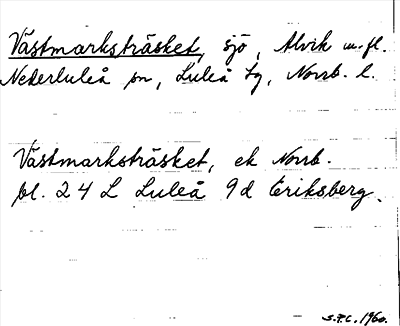 Västmarksträsket, sjö, Alvik m.fl.
Nederluleå sn, Luleå tg, Norrb. l.
Västmarksträsket, ek Norrb.
bl. 24 L Luleå 9d Eriksberg.
S.P.C. 1960.